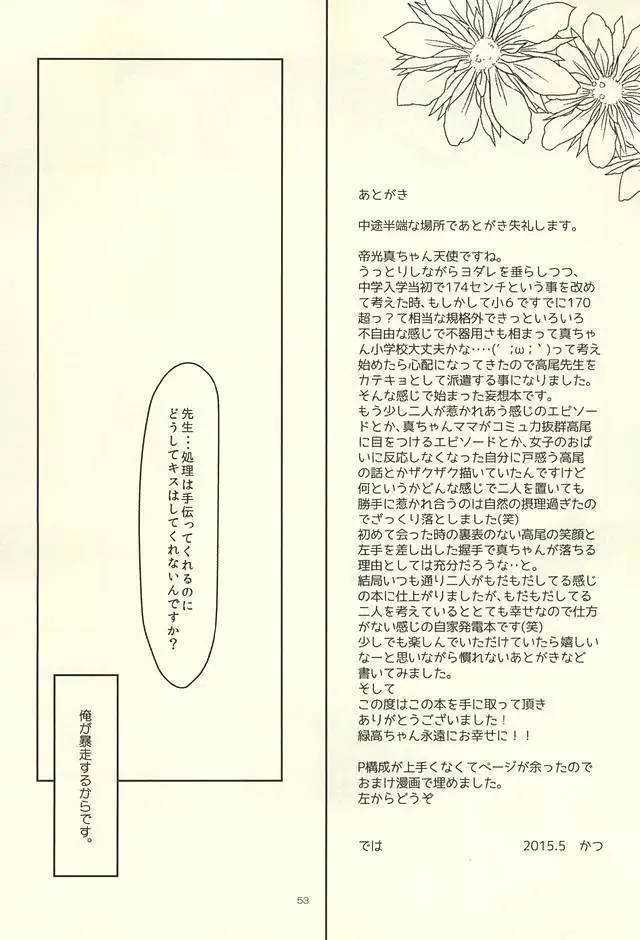 あとがき
中途半端な場所であとがき失礼します。
帝光真ちゃん天使ですね。
うっとりしながらヨダレを垂らしつつ、
中学入学当初で174センチという事を改め
て考えた時、もしかして小6ですでに170
超っ？て相当な規格外できっといろいろ
不自由な感じで不器用さも相まって真ちゃ
ん小学校大丈夫かな‥‥(´；ω；`)って考え
始めたら心配になってきたので高尾先生を
カテキョとして派遣する事になりました。
そんな感じで始まった妄想本です。
もう少し二人が惹かれあう感じのエピソー
ドとか、真ちゃんママがコミュ力抜群高尾
に目をつけるエピソードとか、女子のおぱ
いに反応しなくなった自分に戸惑う高尾
の話とかザクザク描いていたんですけど
何というかどんな感じで二人を置いても
勝手に惹かれ合うのは自然の摂理過ぎたの
でざっくり落としました(笑)
初めて会った時の裏表のない高尾の笑顔と
左手を差し出した握手で真ちゃんが落ちる
理由としては充分だろうな‥と。
結局いつも通り二人がもだもだしてる感じ
の本に仕上がりましたが、もだもだしてる
二人を考えているととても幸せなので仕方
がない感じの自家発電本です(笑)
少しでも楽しんでいただけていたら嬉しい
なーと思いながら慣れないあとがきなど
書いてみました。
そして
この度はこの本を手に取って頂き
ありがとうございました！
緑高ちゃん永遠にお幸せに！！
P構成が上手くなくてページが余ったので
おまけ漫画で埋めました。
左からどうぞ
では 2015.5 かつ
先生…処理は手伝ってくれるのに
どうしてキスはしてくれないんですか？
俺が暴走するからです。
53